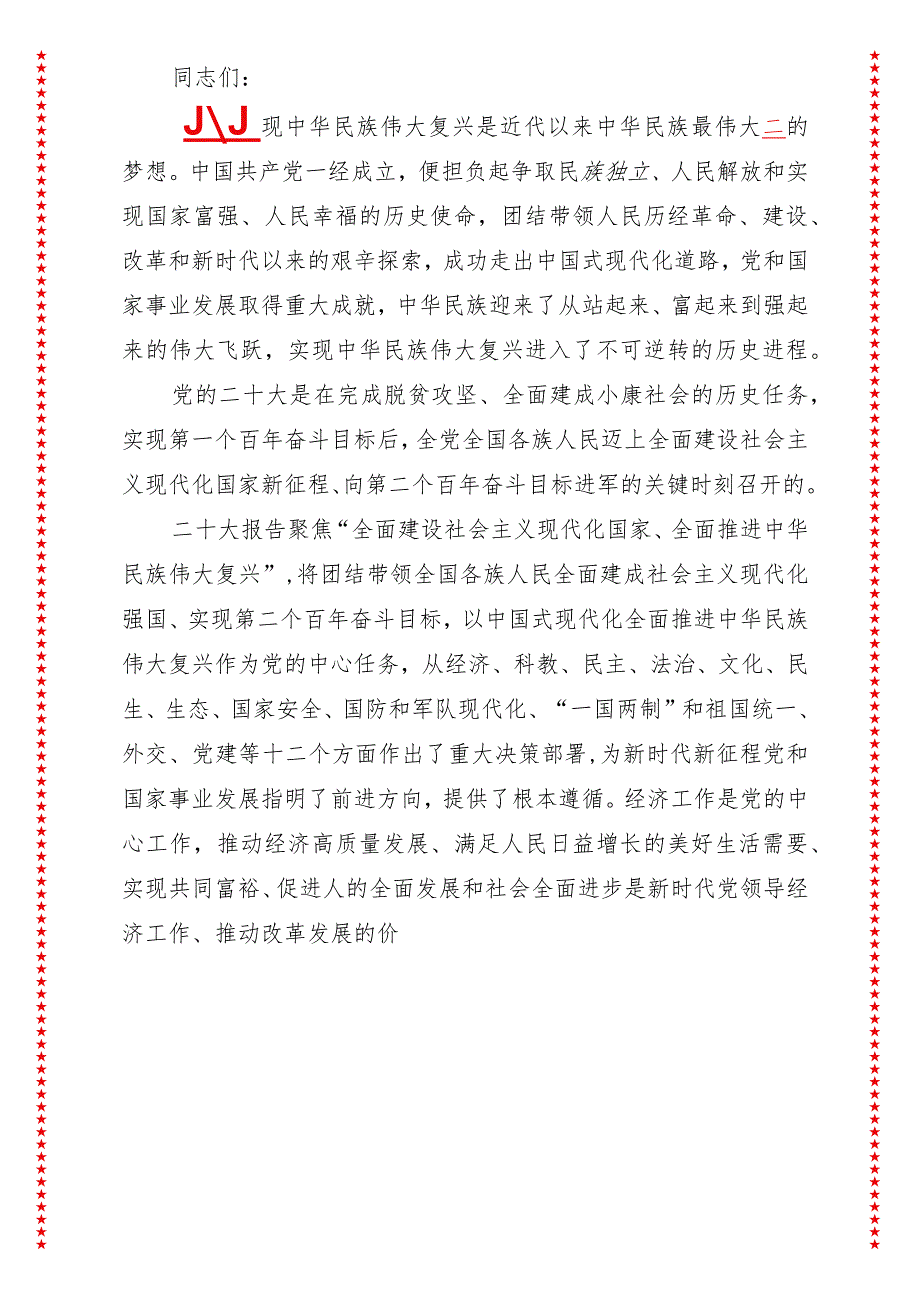 同志们：
J\J现中华民族伟大复兴是近代以来中华民族最伟大二的
梦想。中国共产党一经成立，便担负起争取民族独立、人民解放和实
现国家富强、人民幸福的历史使命，团结带领人民历经革命、建设、
改革和新时代以来的艰辛探索，成功走出中国式现代化道路，党和国
家事业发展取得重大成就，中华民族迎来了从站起来、富起来到强起
来的伟大飞跃，实现中华民族伟大复兴进入了不可逆转的历史进程。
党的二十大是在完成脱贫攻坚、全面建成小康社会的历史任务，
实现第一个百年奋斗目标后，全党全国各族人民迈上全面建设社会主
义现代化国家新征程、向第二个百年奋斗目标进军的关键时刻召开的。
二十大报告聚焦“全面建设社会主义现代化国家、全面推进中华
民族伟大复兴”,将团结带领全国各族人民全面建成社会主义现代化
强国、实现第二个百年奋斗目标，以中国式现代化全面推进中华民族
伟大复兴作为党的中心任务，从经济、科教、民主、法治、文化、民
生、生态、国家安全、国防和军队现代化、“一国两制”和祖国统一、
外交、党建等十二个方面作出了重大决策部署,为新时代新征程党和
国家事业发展指明了前进方向，提供了根本遵循。经济工作是党的中
心工作，推动经济高质量发展、满足人民日益增长的美好生活需要、
实现共同富裕、促进人的全面发展和社会全面进步是新时代党领导经
济工作、推动改革发展的价